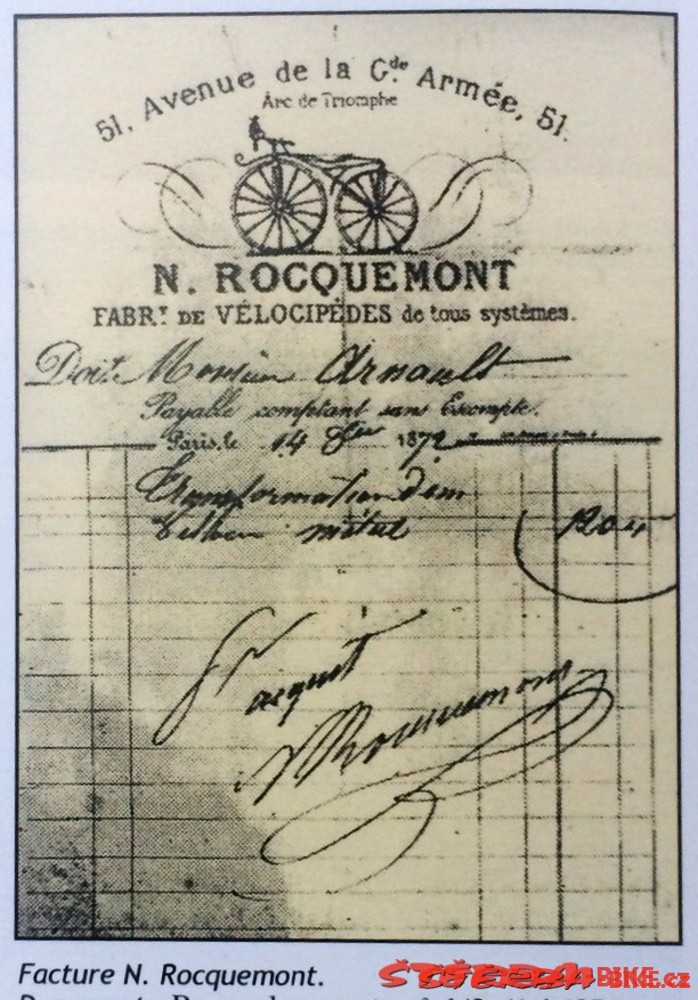 51, Avenue de la Gde. Armée, 51.
Arc de Triomphe
N. ROCQUEMONT
FABRT. DE VÉLOCIPÈDES de tous systèmes.
Doit Monsieur Arnault
Payable comptant sans Escompte.
Paris, le 14 1872
Transformation d'un
métal 120
Pr acquit
N Rocquemont
Facture N. Rocquemont.
BIKE.cz